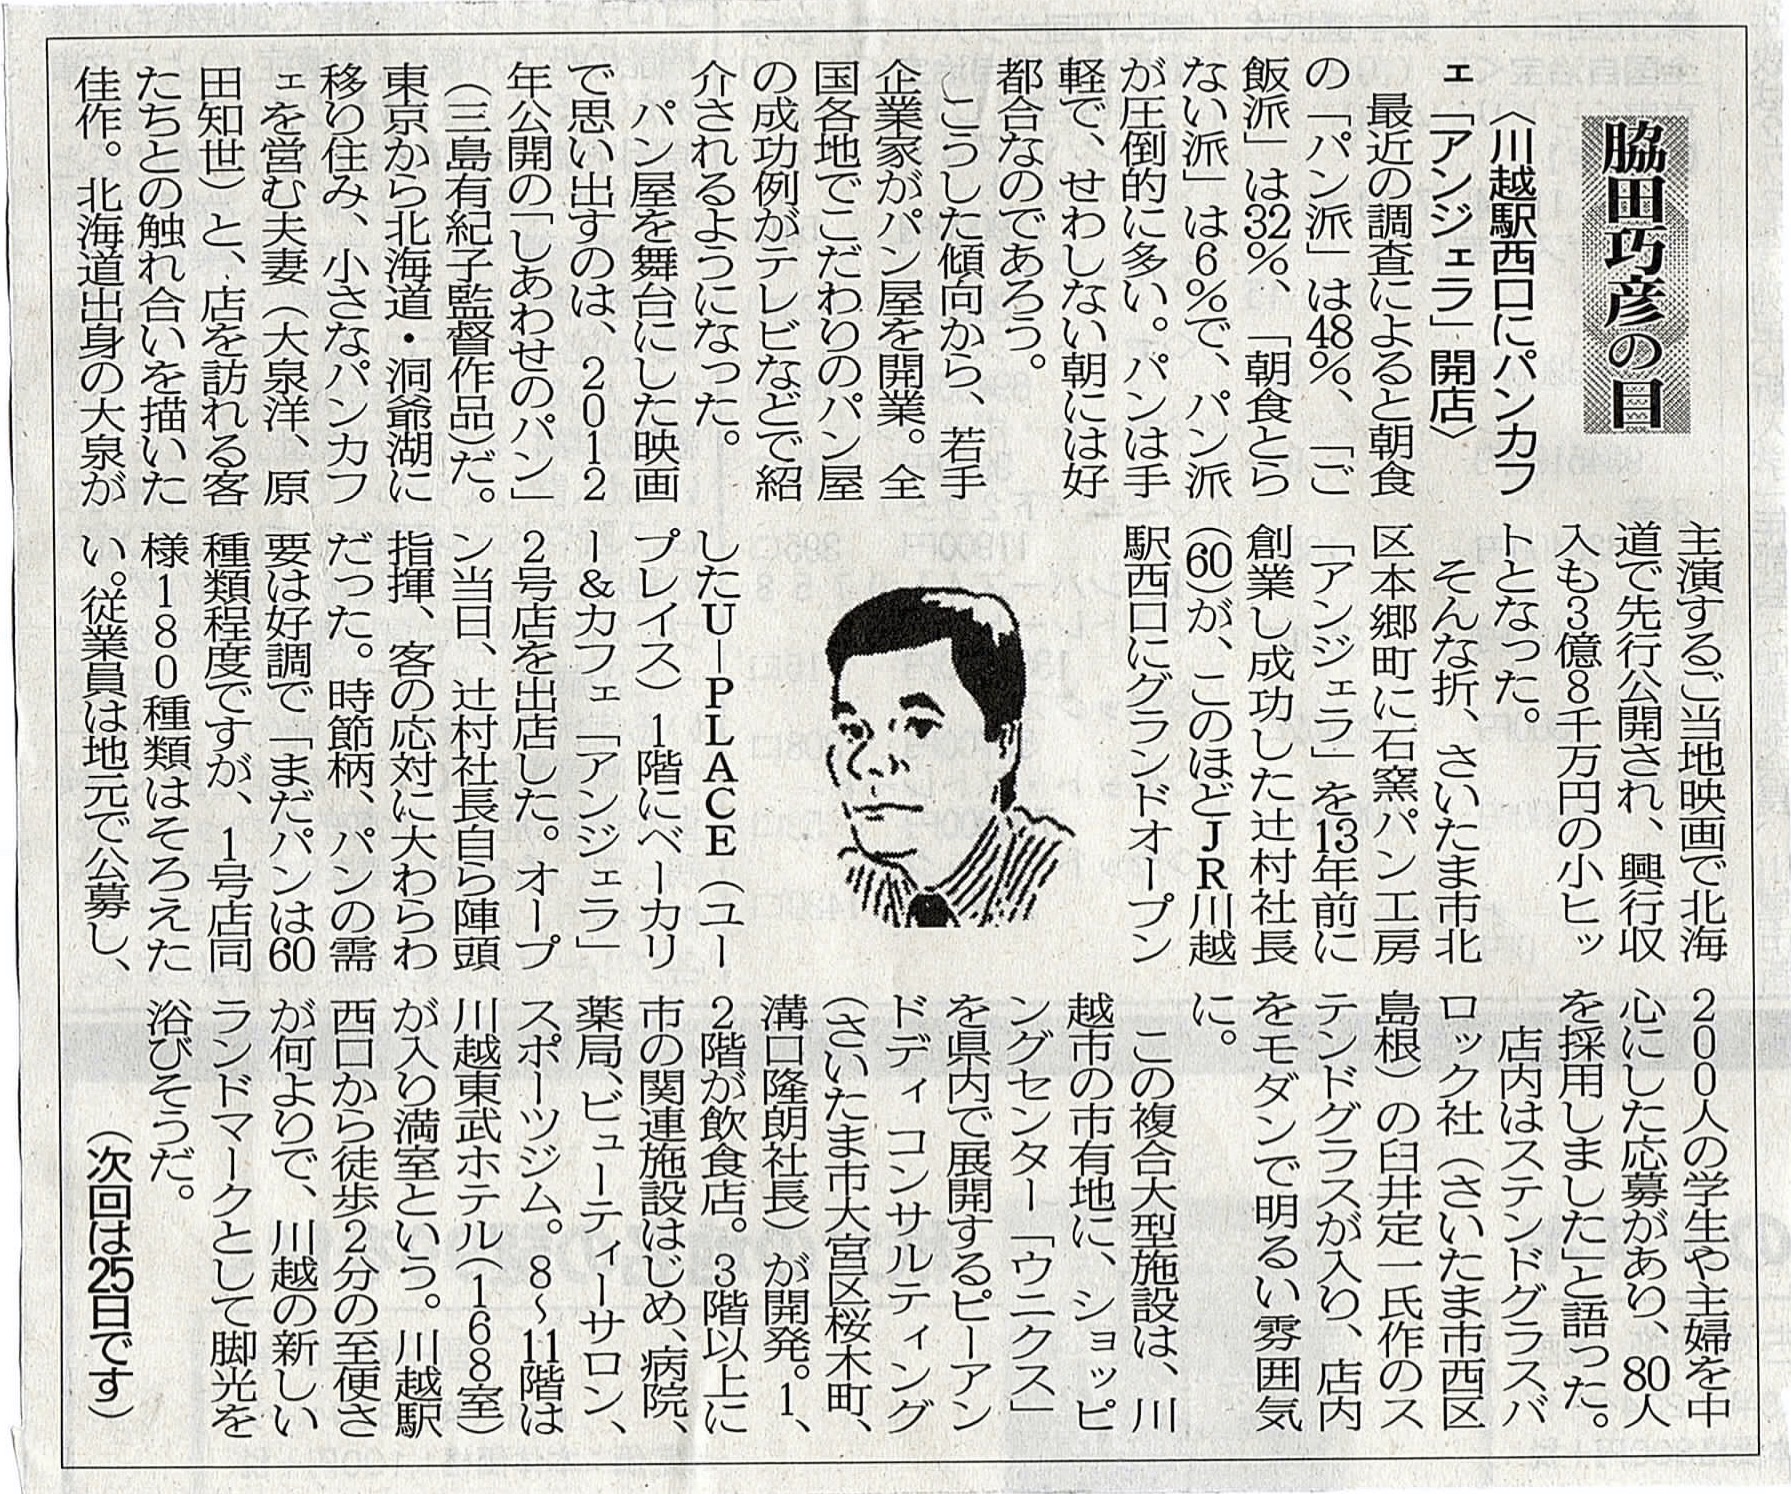 脇田巧彦の目
〈川越駅西口にパンカフ
ェ「アンジェラ」開店〉
最近の調査によると朝食
の「パン派」は48%、「ご
飯派」は32%、「朝食とら
ない派」は6%で、パン派
が圧倒的に多い。パンは手
軽で、せわしない朝には好
都合なのであろう。
こうした傾向から、若手
企業家がパン屋を開業。全
国各地でこだわりのパン屋
の成功例がテレビなどで紹
介されるようになった。
パン屋を舞台にした映画
で思い出すのは、2012
年公開の「しあわせのパン」
（三島有紀子監督作品）だ。
東京から北海道・洞爺湖に
移り住み、小さなパンカフ
ェを営む夫妻（大泉洋、原
田知世）と、店を訪れる客
たちとの触れ合いを描いた
佳作。北海道出身の大泉が
主演するご当地映画で北海
道で先行公開され、興行収
入も3億8千万円の小ヒッ
トとなった。
そんな折、さいたま市北
区本郷町に石窯パン工房
「アンジェラ」を13年前に
創業し成功した辻村社長
（60）が、このほどJR川越
駅西口にグランドオープン
したU−PLACE（ユー
プレイス）1階にベーカリ
ー&カフェ「アンジェラ」
2号店を出店した。オープ
ン当日、辻村社長自ら陣頭
指揮、客の応対に大わらわ
だった。時節柄、パンの需
要は好調で「まだパンは60
種類程度ですが、1号店同
様180種類はそろえた
い。従業員は地元で公募し、
200人の学生や主婦を中
心にした応募があり、80人
を採用しました」と語った。
店内はステンドグラスバ
ロック社（さいたま市西区
島根）の臼井定一氏作のス
テンドグラスが入り、店内
をモダンで明るい雰囲気
に。
この複合大型施設は、川
越市の市有地に、ショッピ
ングセンター「ウニクス」
を県内で展開するピーアン
ドディコンサルティング
（さいたま市大宮区桜木町、
溝口隆朗社長）が開発。1、
2階が飲食店。3階以上に
市の関連施設はじめ、病院、
薬局、ビューティーサロン、
スポーツジム。8〜11階は
川越東武ホテル（168室）
が入り満室という。川越駅
西口から徒歩2分の至便さ
が何よりで、川越の新しい
ランドマークとして脚光を
浴びそうだ。
（次回は25日です）